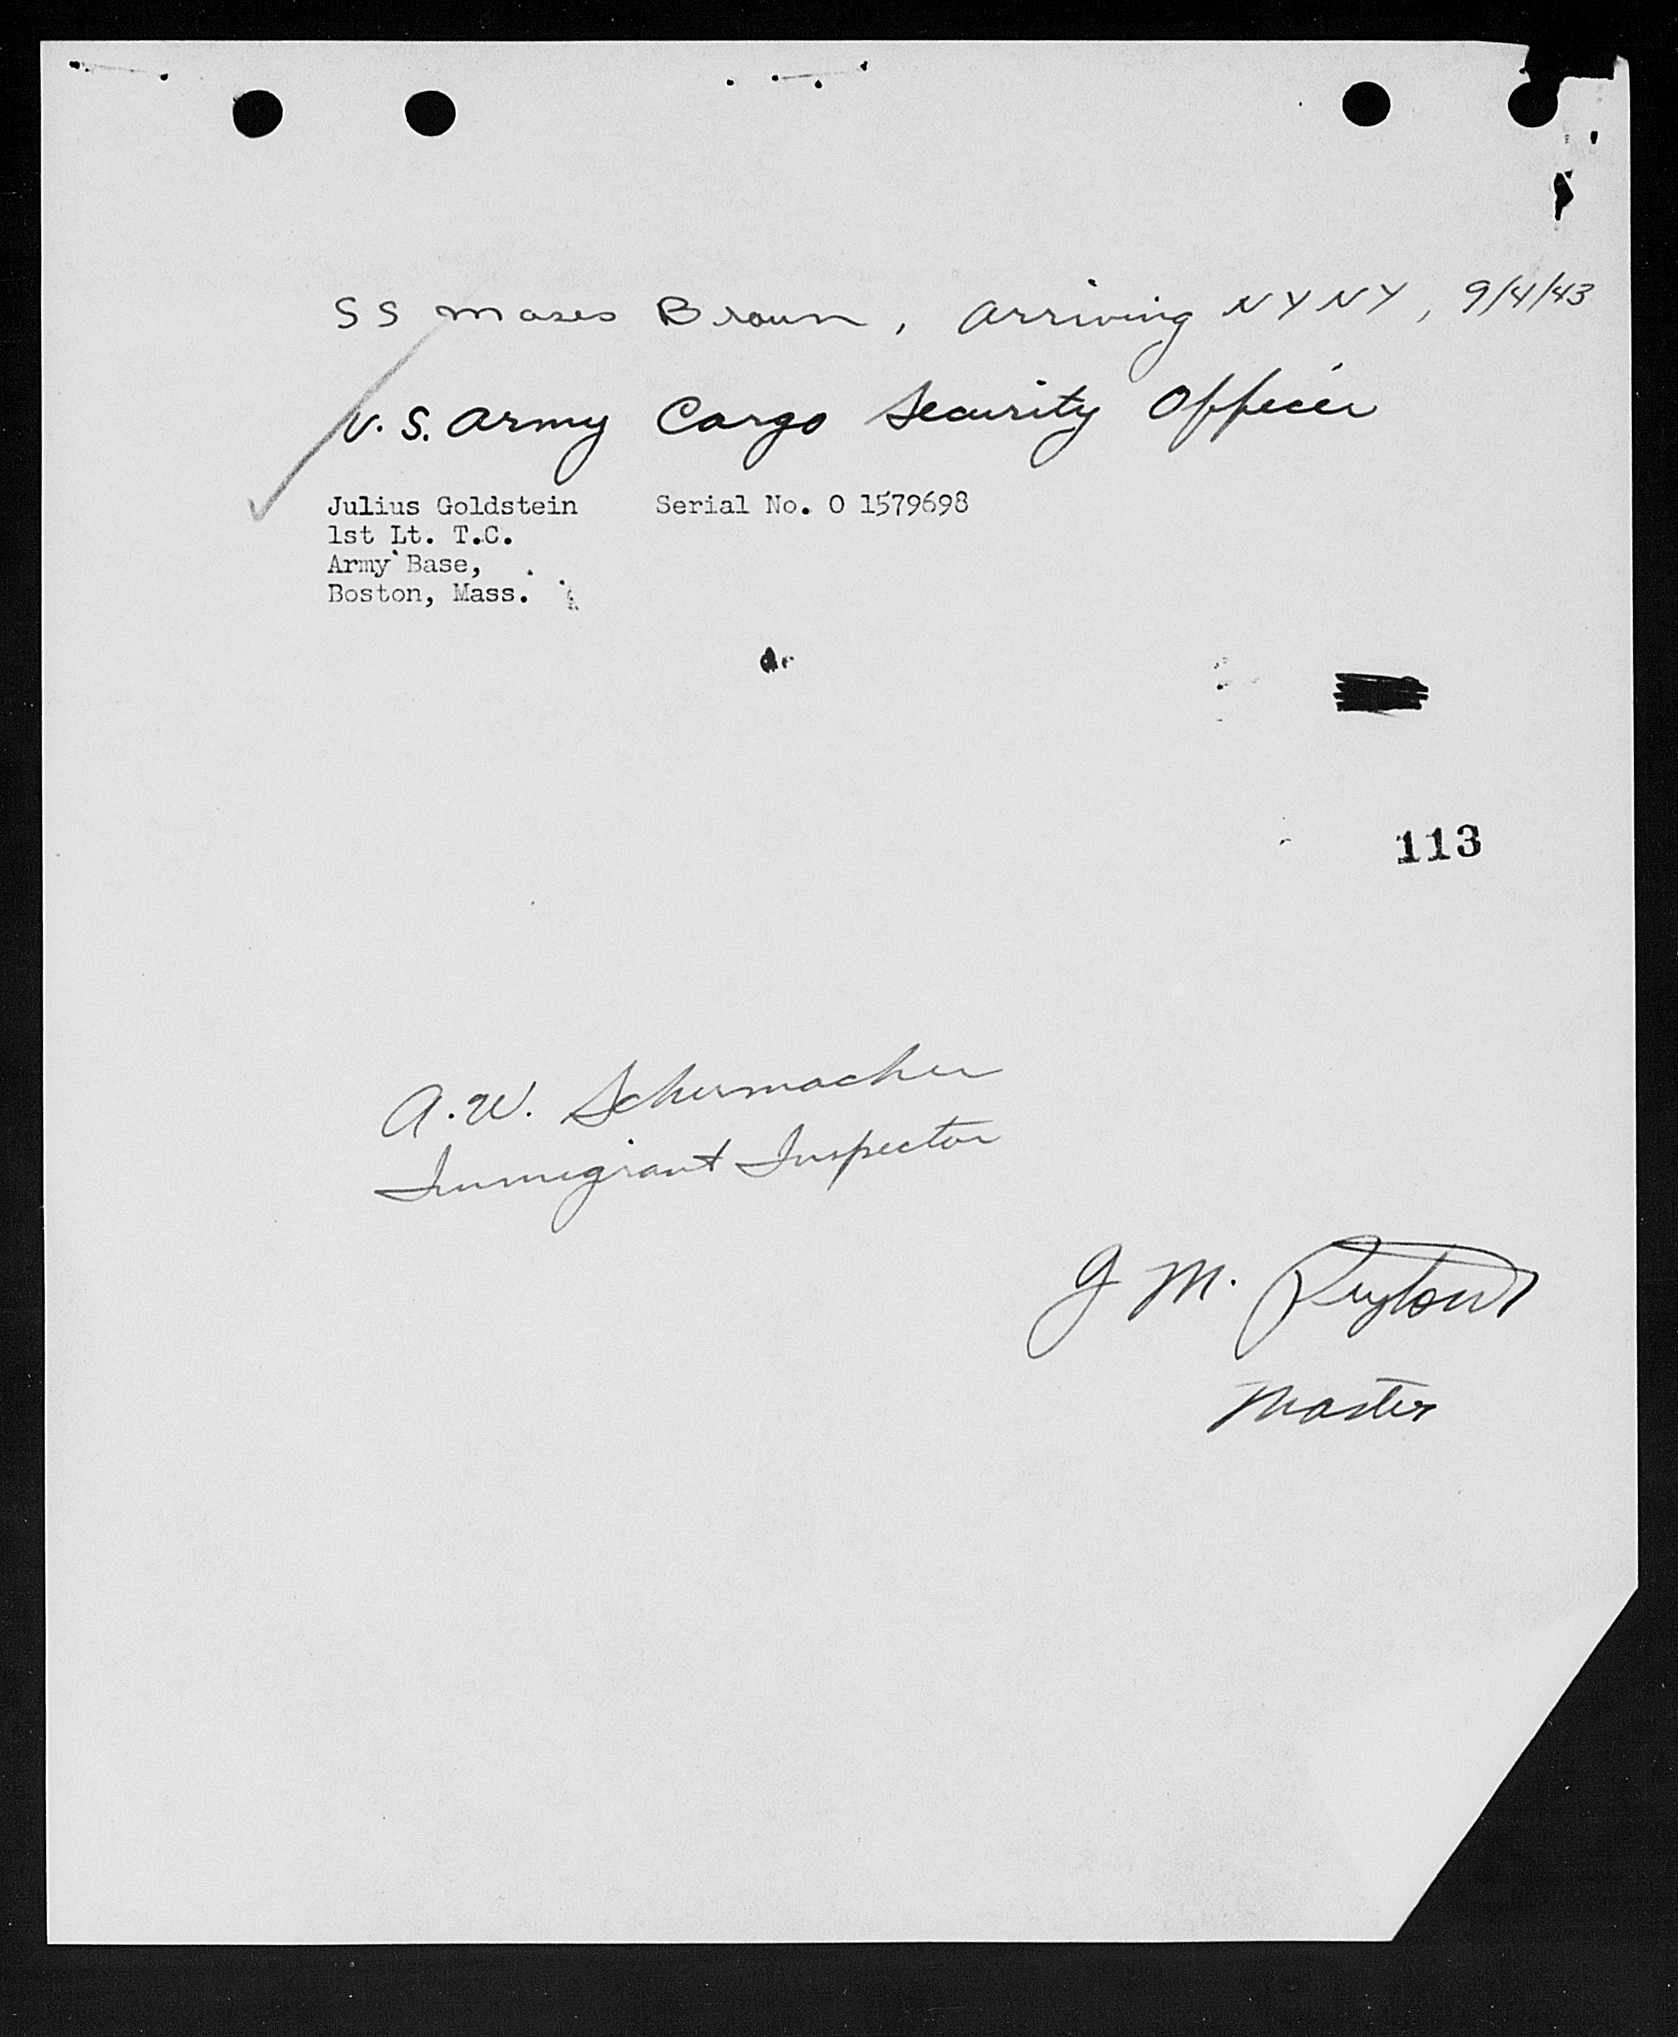 SS Moses Brown, Arriving NYNY, 9/4/43
U.S. Army Cargo Security Officer
Julius Goldstein Serial No. O 1579698
1st Lt. T.C.
Army Base,
Boston, Mass.
113
A.W. Schermacher
Immigrant Inspector
J M.
Master